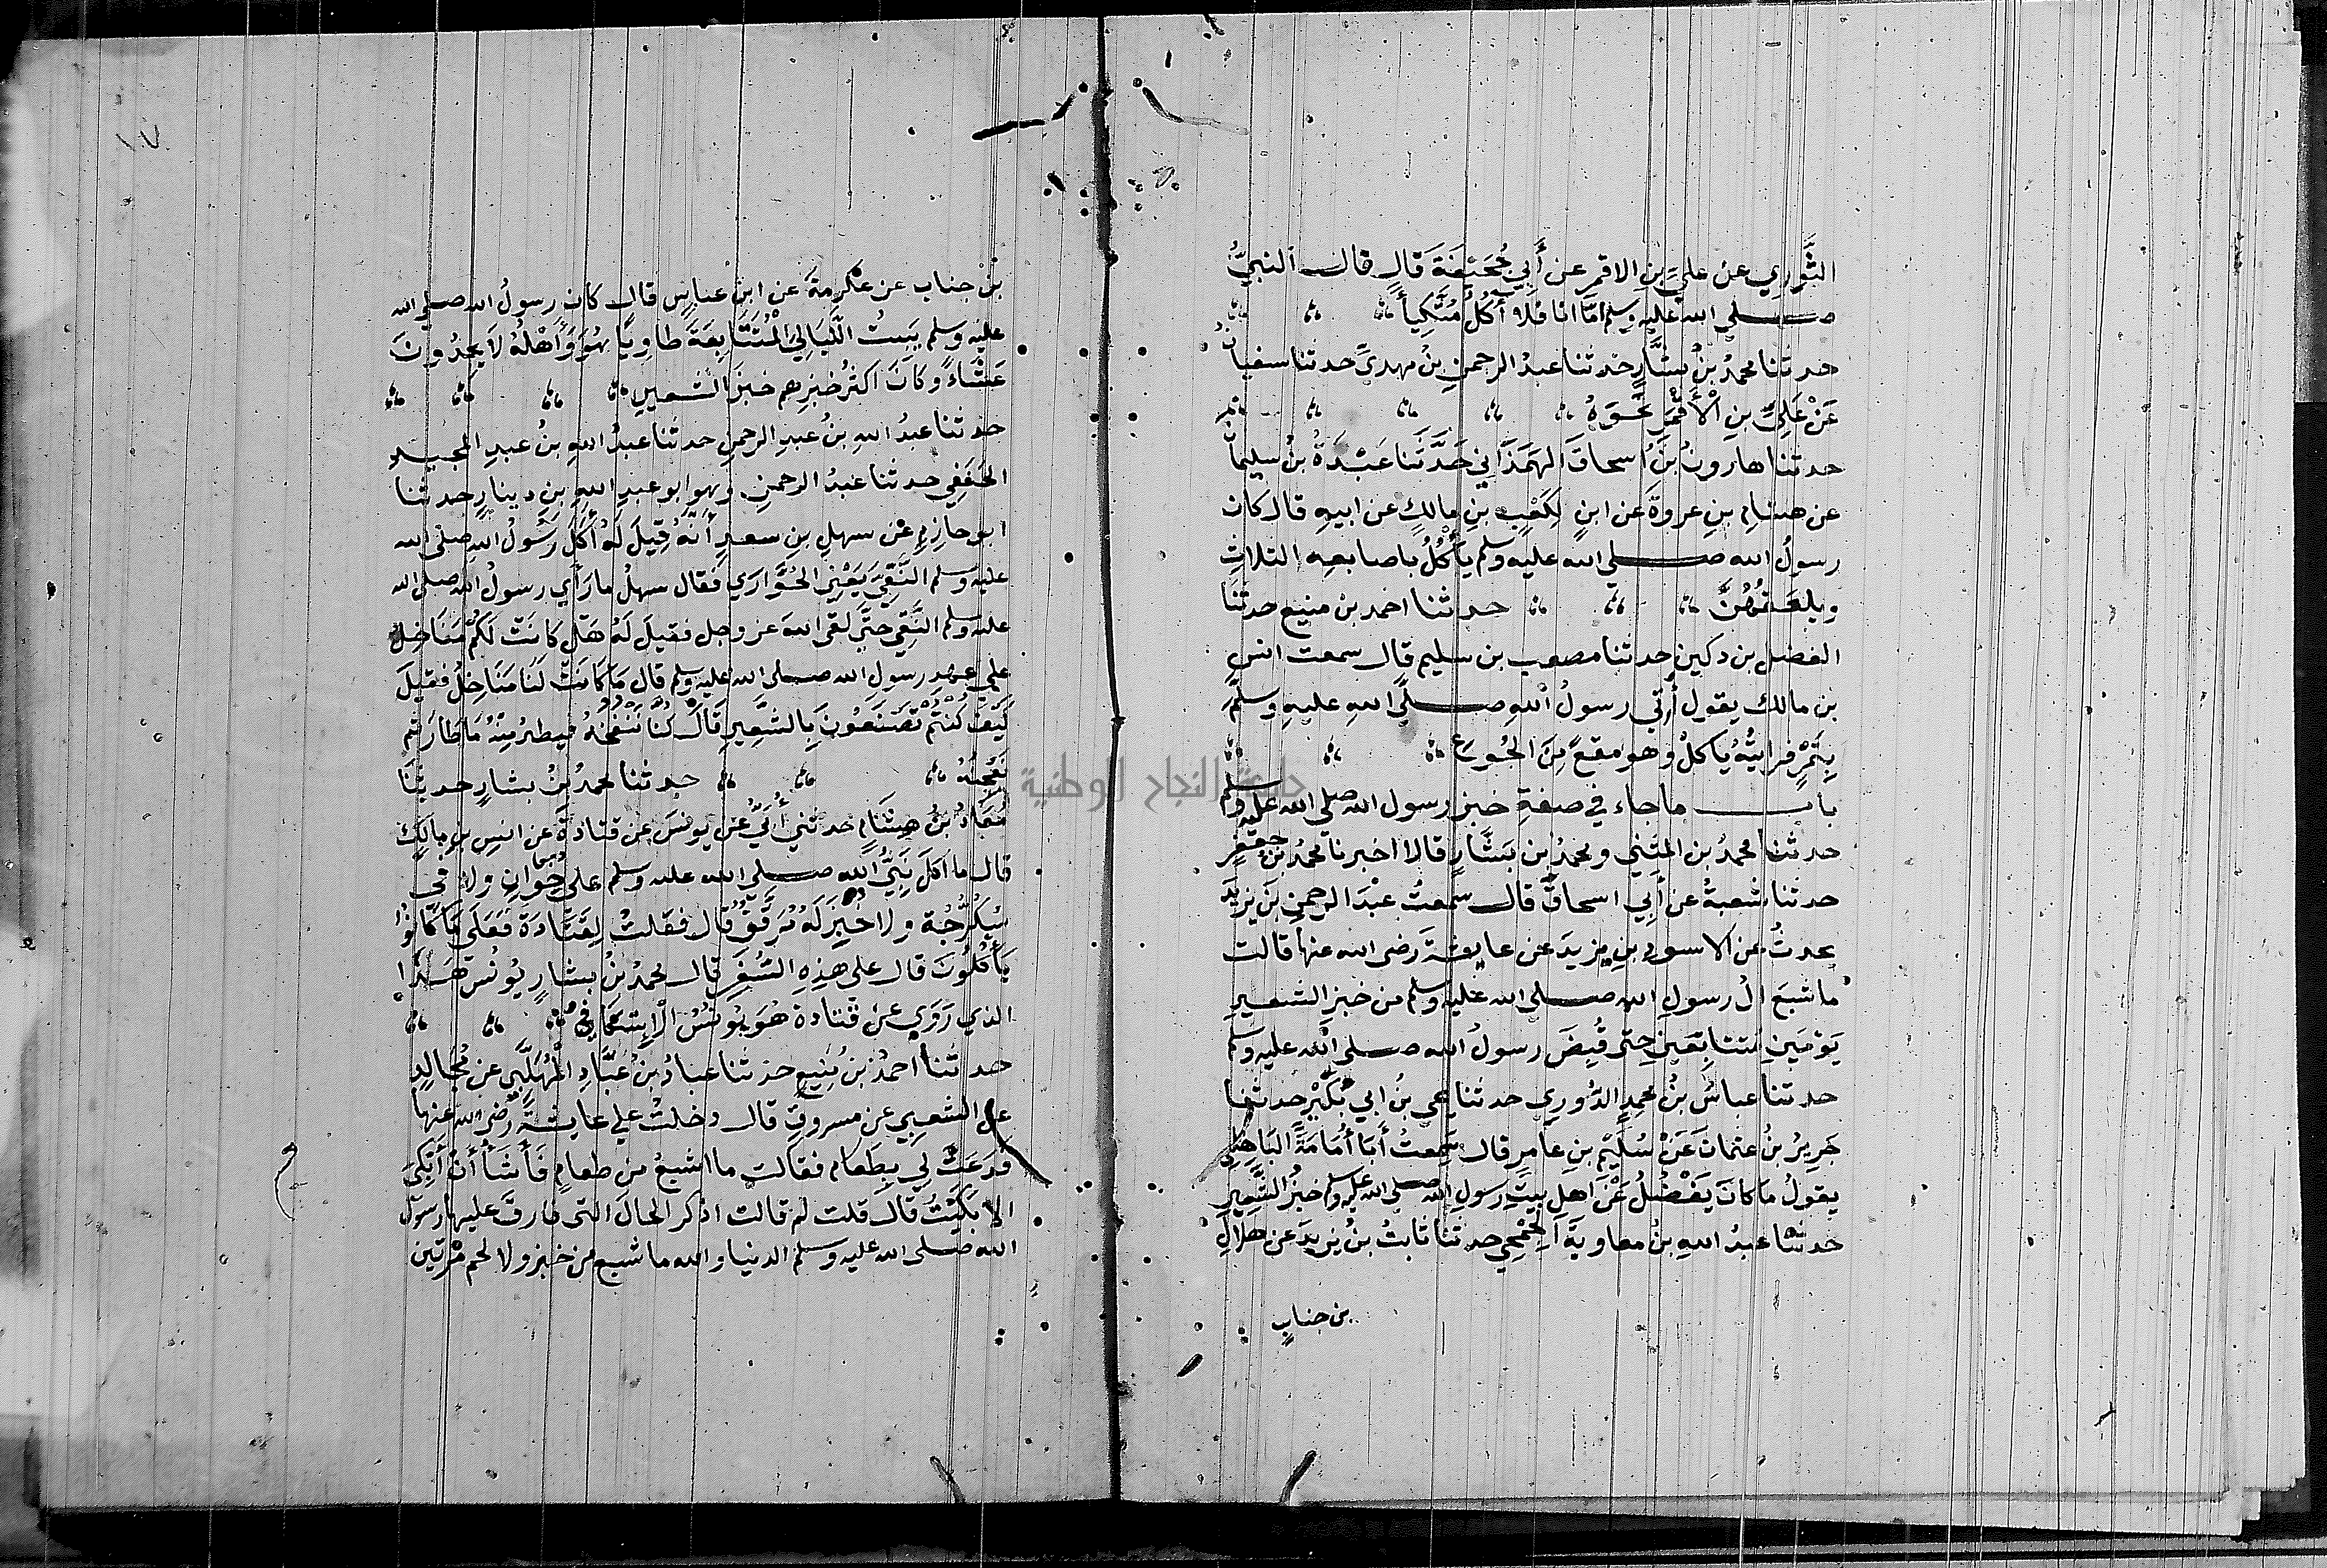 الثَّوْرِي عن عليِّ بنِ الاقمر عن أَبِي جُحَيْفَةَ قَالَ قال النبيُّ
صلى الله عليه وسلم امَّا انا فلا أكُلُ مُتَّكِياً
حدثنا محمدُ بنُ بشَّارٍ حدثنا عبدُ الرحمنِ بنُ مهديّ حدثنا سفيانُ
عَنْ عَلِيِّ بنِ الْأَقْمَرِ نَحْوَهُ
حدثنا هارونُ بنُ اسحاقَ الهَمَدَانِي حَدَّثَنا عَبْدَةُ بنُ سليمان
عن هشامِ بنِ عروةَ عن ابنٍ لِكَعْبِ بنِ مالكٍ عن ابيهِ قال كان
رسولُ الله صلى الله عليه وسلم يَأكُلُ باصابعِهِ الثلاثِ
ويلعَقُهُنَّ حدثنا احمد بن منيع حدثنا
الفضل بن دكين حدثنا مصعب بن سليم قال سمعت انس
بن مالك يقول أُتِي رسولُ اللهِ صلَّى اللهِ عليهِ وسلَّم
بِتَمْرٍ فرايتُهُ يُاكلُ وهو مقعٍ مِنَ الجُوعِ
باب ماجاء في صفةِ خبزِ رسولِ الله صلى الله عليه وسلم
حدثنا محمدُ بن المثني ومحمدُ بن بَشَّارٍ قالا اخبرنا محمدُ بن جعفرٍ
حدثنا شعبةُ عن أَبِي اسحاقَ قال سمعتُ عبْدَ الرحمنِ بنَ يزيدَ
يحدثُ عن الاسودِ بنِ يزيدَ عن عايشةَ رضى الله عنها قالت
ما شبعَ الُ رسولِ الله صلى الله عليه وسلم من خبزِ الشعيرِ
يَوْمَينِ مُتتابعَينِ حتى قُبِضَ رسولُ الله صلى الله عليه وسلم
حدثنا عباسُ بنُ محمدٍ الدُّورِي حدثنا يحيى بنُ ابي بُكَيْرٍ حدثنا
جَرِيرُ بنُ عثمانَ عَنْ سُلَيْمِ بنِ عَامرٍ قال سَمِعتُ أَبَا أُمَامَةَ البَاهِلِي
يقولُ ما كانَ يَفْضُلُ عَنْ اهلِ بيتِ رسولِ الله صلى الله عليه وسلم خبزُ الشَّعِيرِ
حدثنا عبدُ اللهِ بنُ معاويةَ الجُمَحِي حدثنا ثابتُ بنُ يزيدَ عن هلالِ
بن جنابٍ
١٧
بْنِ جناب عن عكرِمةَ عن ابنِ عباسٍ قال كان رسولُ الله صلى الله
عليه وسلم يَبيتُ اللَّيَالِيَ المُتَتَابِعَةَ طاوِيًا هُوَ وَأَهْلُهُ لَا يَجِدُونَ
عَشَاءً وكَانَ اكثرُ خبزِهم خبزَ الشعيرِ
حدثنا عبدُ اللهِ بنُ عبدِ الرحمنِ حدثنا عبدُ اللهِ بنُ عبدِ المجيد
الحَنَفِي حدثنا عبدُ الرحمنِ وهو ابو عبدِ اللهِ بنِ دينارٍ حدثنا
ابو حازمٍ عن سهلِ بنِ سعدٍ أنَّهُ قِيلَ لَهُ أَكَلَ رَسُولُ اللهِ صلى الله
عليه وسلم النَّقِيَّ يَعْنِي الحُوَّارَي فَقال سهلُ ما رَأي رسولُ الله صلى الله
عليه وسلم النَّقِي حتَّى لَقى اللهَ عز وجل فقيلَ لَهُ هَلْ كانَتْ لَكُمْ مَنَاخِلُ
علي عهدِ رسولِ الله صلى الله عليه وسلم قال مَا كَانَتْ لَنَا مَنَاخِلُ فقيلَ
كَيْفَ كُنْتُمْ تَصْنَعُونَ بِالشَّعِيرِ قَالَ كنا نَنْفُخُهُ فيطيرُ مِنْهُ مَا طَارَ ثم
نَعْجِنُهُ حدثنا محمدُ بنُ بشارٍ حدثنا
مُعَاذُ بنُ هِشَامٍ حدثني أَبِي عن يونسَ عن قتادةَ عن انسِ بنِ مالكٍ
قال ما اكَلَ نَبِيُّ اللهِ صلى الله عليه وسلم على خُوانٍ ولا في
سُكُرُّجَةٍ ولا خُبِزَ لَهُ مُرَقَّقٌ قال فقلتُ لِقَتَادَةَ فَعَلَى مَا كَانُوا
يَأْكُلُونَ قال على هذِهِ السُّفَرِ قال محمدُ بنُ بشارٍ يُونُسُ هَذَا
الذي رَوَى عن قتادة هُوَ يُونُسُ الْإِسْكَافُ
حدثنا أحمدُ بن مُنِيعٍ حدثنا عبادُ بنُ عَبَّادٍ المُهَلَّبِي عن مُجَالِدٍ
عن الشعبِي عن مسروقٍ قال دخلتُ علي عايشةَ رضى الله عنها
فدَعَتْ لِي بِطَعام فقالت ما اشبعُ من طعامٍ فَأَشَاءُ أنْ أَبْكِيَ
الا بَكَيْتُ قَالَ قلت لم قالت اذكر الحالَ التى فارقَ عليها رسول
الله صلى الله عليه وسلم الدنيا والله ما شبع من خبز ولا لحم مرتين
جامعة النجاح الوطنية